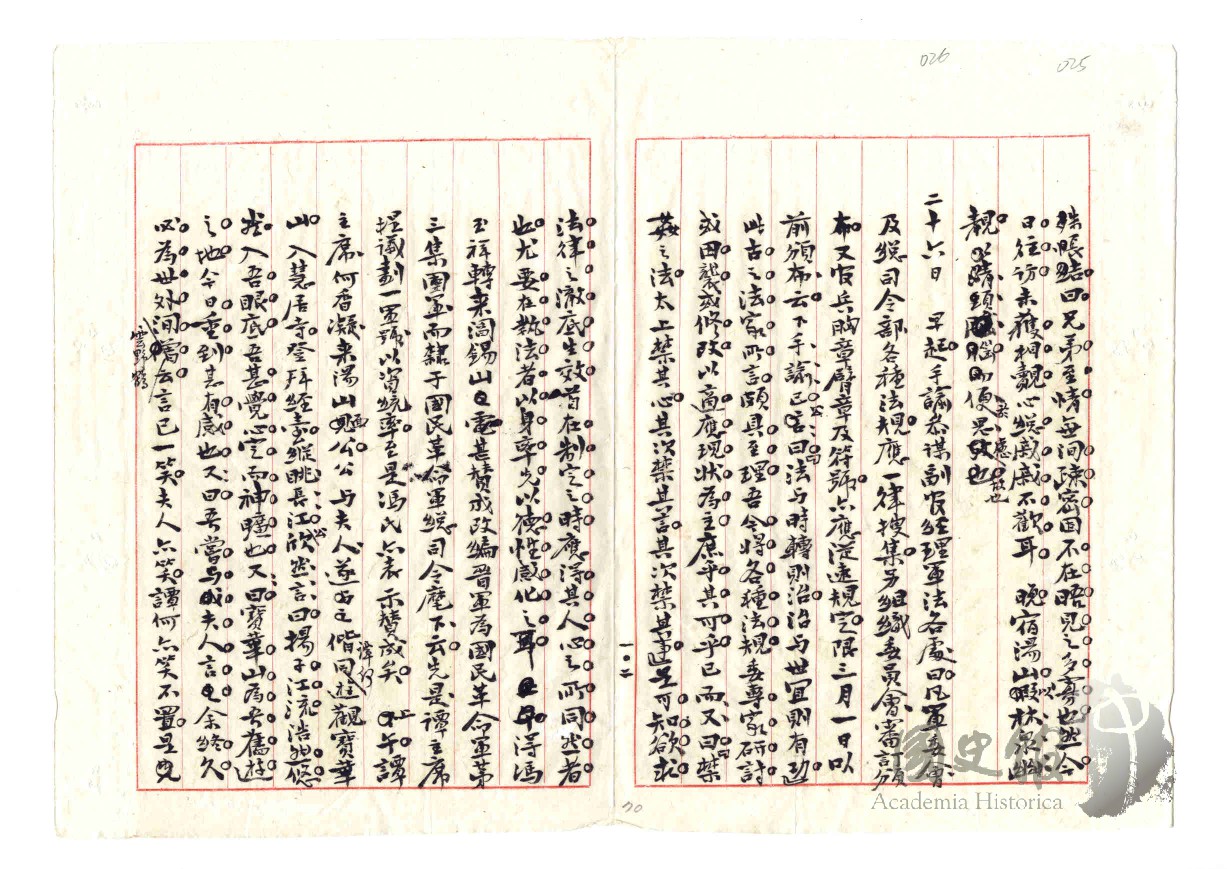 026
025
殊悵結曰兄弟至情無间疎密固不在晤見之多寡也然今
日往訪未獲相覿心緃戚戚不歡耳 晚宿湯山以林泉幽
靚 便思 也
二十六日 早起手諭參謀副官經理軍法各處曰凡軍委會
及總司令部各種法規應一律搜集另組織委員會審訂頒
布又官兵胸章臂章及符號亦應從速規定限三月一日以
前頒布云下手諭已公言曰法与時轉則治治与世宜則有功
此古之法家所言頗具至理吾今將各種法規委專家研討
或因襲或修改以適應現狀為主庶乎其可乎已而又曰禁
姦之法太上禁其心其次禁其言其次禁其事是可知欲求
法律之澈底生效首在制定之時應得其人心之所同然者
也尤要在執法者以身率先以德性感化之耳 得馮
玉祥轉來閻錫山電甚贊成改編晉軍為國民革命軍第
三集團軍而隸于國民革命軍總司令麾下云先是譚主席
提議劃一軍號以資統率至是馮氏亦表示贊成矣 上午譚
主席何香凝來湯山面公公与夫人遂与之偕同遊觀寶華
譚何
山入慧居寺登拜經臺縱眺長江公欣然言曰揚子江流浩然悠
然入吾眼底吾甚覺心定而神曠也又曰寶華山為吾舊遊
之地今日重到甚有感也又曰吾嘗与夫人言余終久
必為世外间雲野鶴言已一笑夫人亦笑譚何亦笑不置是晚
一〇二
70
國史館
Academia Historica